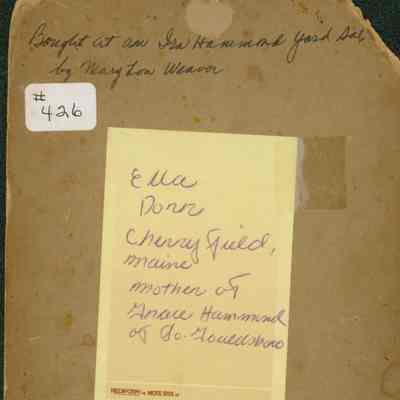 Bought at an Ira Hammond Yard Sale
by Mary Lou Weaver
#
426
Ella
Dorr
Cherryfield,
maine
mother of
Grace Hammond
of So. Gouldsboro